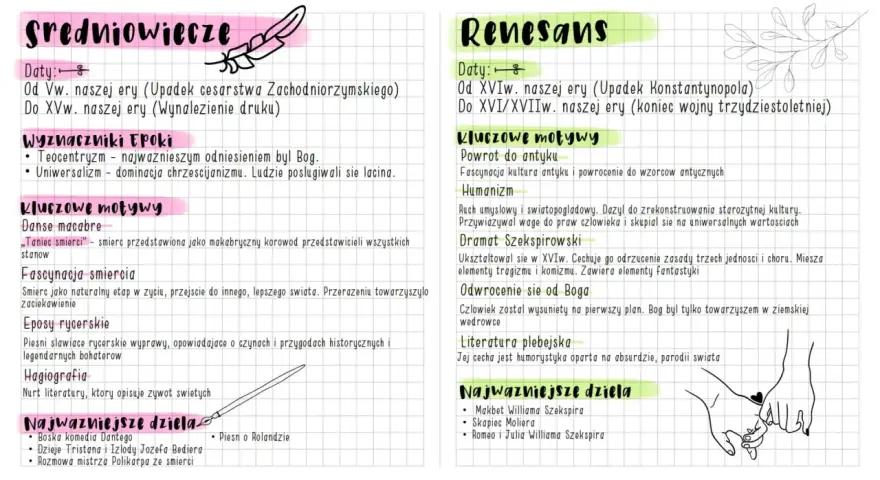 Sredniowiecze
Daty:
Od Vw. naszej ery (Upadek cesarstwa Zachodniorzymskiego)
Do XVw. naszej ery (Wynalezienie druku)
Wyznaczniki Epoki
• Teocentryzm - najwaznieszym odniesieniem byl Bog.
• Uniwersalizm - dominacja chrzescijanizmu. Ludzie poslugiwali sie lacina.
Kluczowe motywy
Danse macabre
„Taniec smierci" - smierc przedstawiona jako makabryczny korowod przedstawicieli wszystkich
stanow
Fascynacja smiercia
Smierc jako naturalny etap w zyciu, przejscie do innego, lepszego swiata. Przerazeniu towarzyszylo
zaciekawienie
Eposy rycerskie
Piesni slawiace rycerskie wyprawy, opowiadajace o czynach i przygodach historycznych i
legendarnych bohaterow
Hagiografia
Nurt literatury, ktory opisuje zywot swietych
Najwazniejsze dziela
• Boska komedia Dantego
• Piesn o Rolandzie
• Dzieje Tristana i Izlody Jozefa Bediera
• Rozmowa mistrza Polikarpa ze smierci
Renesans
Daty:
Od XVIw. naszej ery (Upadek Konstantynopola)
Do XVI/XVIIw. naszej ery (koniec wojny trzydziestoletniej)
Kluczowe motywy
Powrot do antyku
Fascynacja kultura antyku i powrocenie do wzorcow antycznych
Humanizm
Ruch umyslowy i swiatopogladowy. Dazyl do zrekonstruowania starozytnej kultury.
Przywiazywal wage do praw czlowieka i skupial sie na uniwersalnych wartosciach
Dramat Szekspirowski
Uksztaltowal sie w XVIw. Cechuje go odrzucenie zasady trzech jednosci i choru. Miesza
elementy tragizmu i komizmu. Zawiera elementy fantastyki
Odwrocenie sie od Boga
Czlowiek zostal wysuniety na pierwszy plan. Bog byl tylko towarzyszem w ziemskiej
wedrowce
Literatura plebejska
Jej cecha jest humorystyka oparta na absurdzie, parodii swiata
Najwazniejsze dziela
• Makbet Williama Szekspira
• Skapiec Moliera
• Romeo i Julia Williama Szekspira